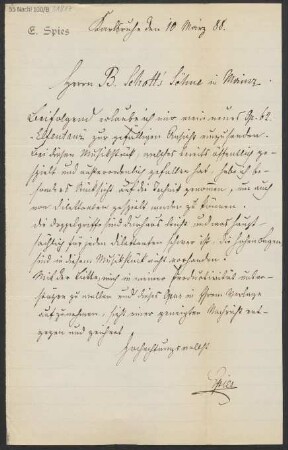 55 Nachl 100/B
E. Spies
Karlsruhe den 10 März 88.
Herrn B. Schott's Söhne in Mainz
Beifolgend erlaube ich mir mein neues Op. 62
zur gefälligen Ansicht einzusenden.
Bei diesem Musikstück, welches bereits öffentlich ge-
spielt und außerordentlich gefallen hat, habe ich be-
sonders Rücksicht auf die genommen, um auch
von Dilettanten gespielt werden zu können.
die Doppelgriffe sind durchaus leicht, und was haupt-
sächlich für jeden Dilettanten schwer ist, die hohen Lagen
sind in diesem Musikstück nicht vorhanden.
Mit der Bitte, mich in meiner Productivität unter-
stützen zu wollen und dieses Opus in Ihrem Verlage
aufzunehmen, sieht einer geneigten Nachricht ent-
gegen und zeichnet
Hochachtungsvollst
Spies